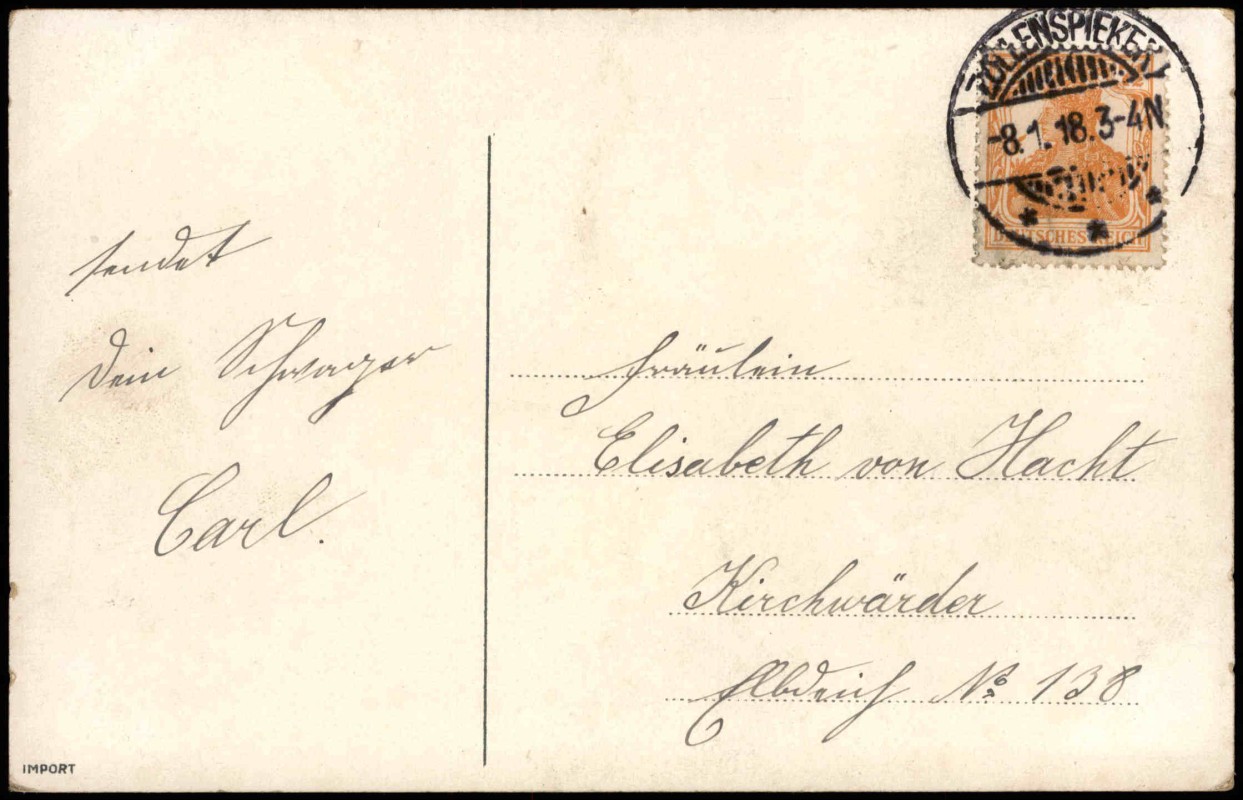 ZOLLENSPIEKER
-8.1.18.3-4N
DEUTSCHES REICH
sendet
Dein Schwager
Carl.
Fräulein
Elisabeth von Hacht
Kirchwärder
Elbdeich No 138
IMPORT